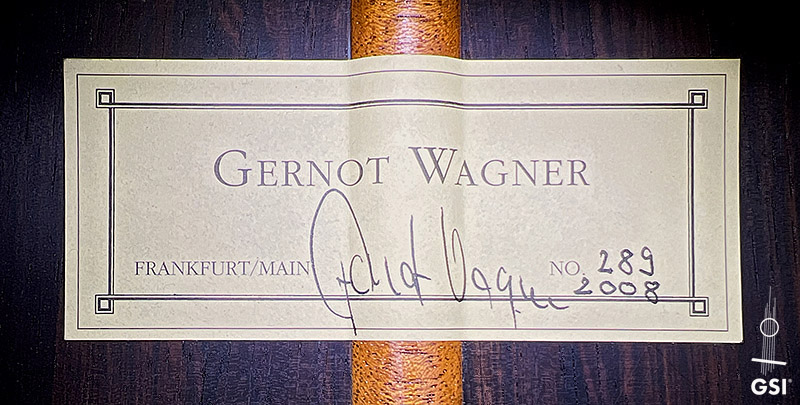 GERNOT WAGNER
Gernot Wagner
FRANKFURT/MAIN
NO. 289
2008
GSI